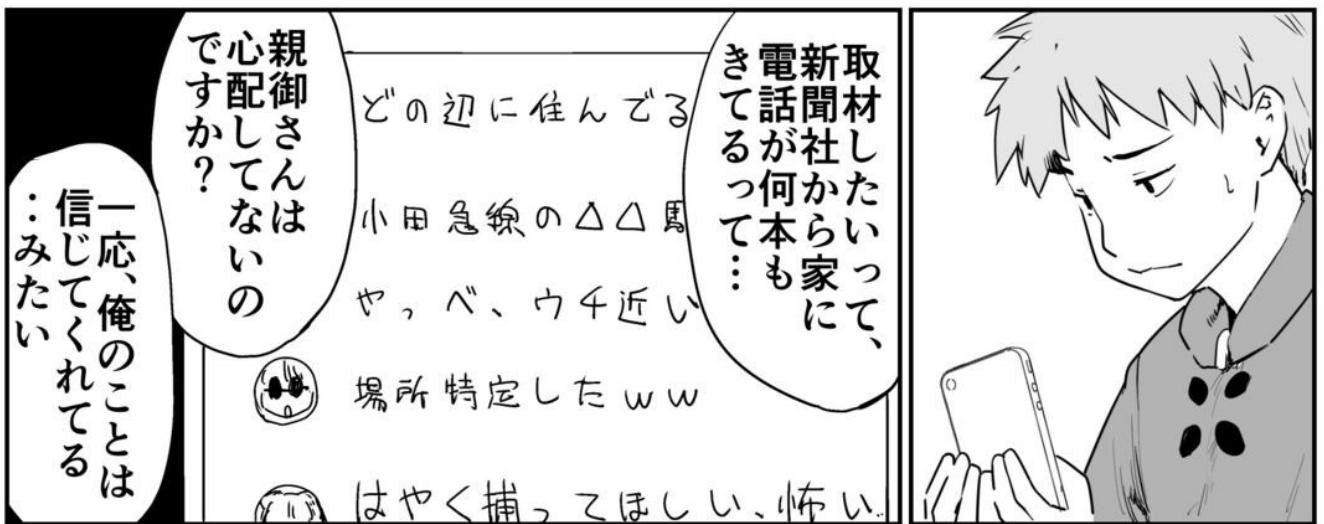 取材したいって、
新聞社から家に
電話が何本も
きてるって…
どの辺に住んでる
小田急線の△△
やっべ、ウチ近い
場所特定したww
はやく捕ってほしい、怖い
親御さんは
心配してないの
ですか?
一応、俺のことは
信じてくれてる
‥みたい